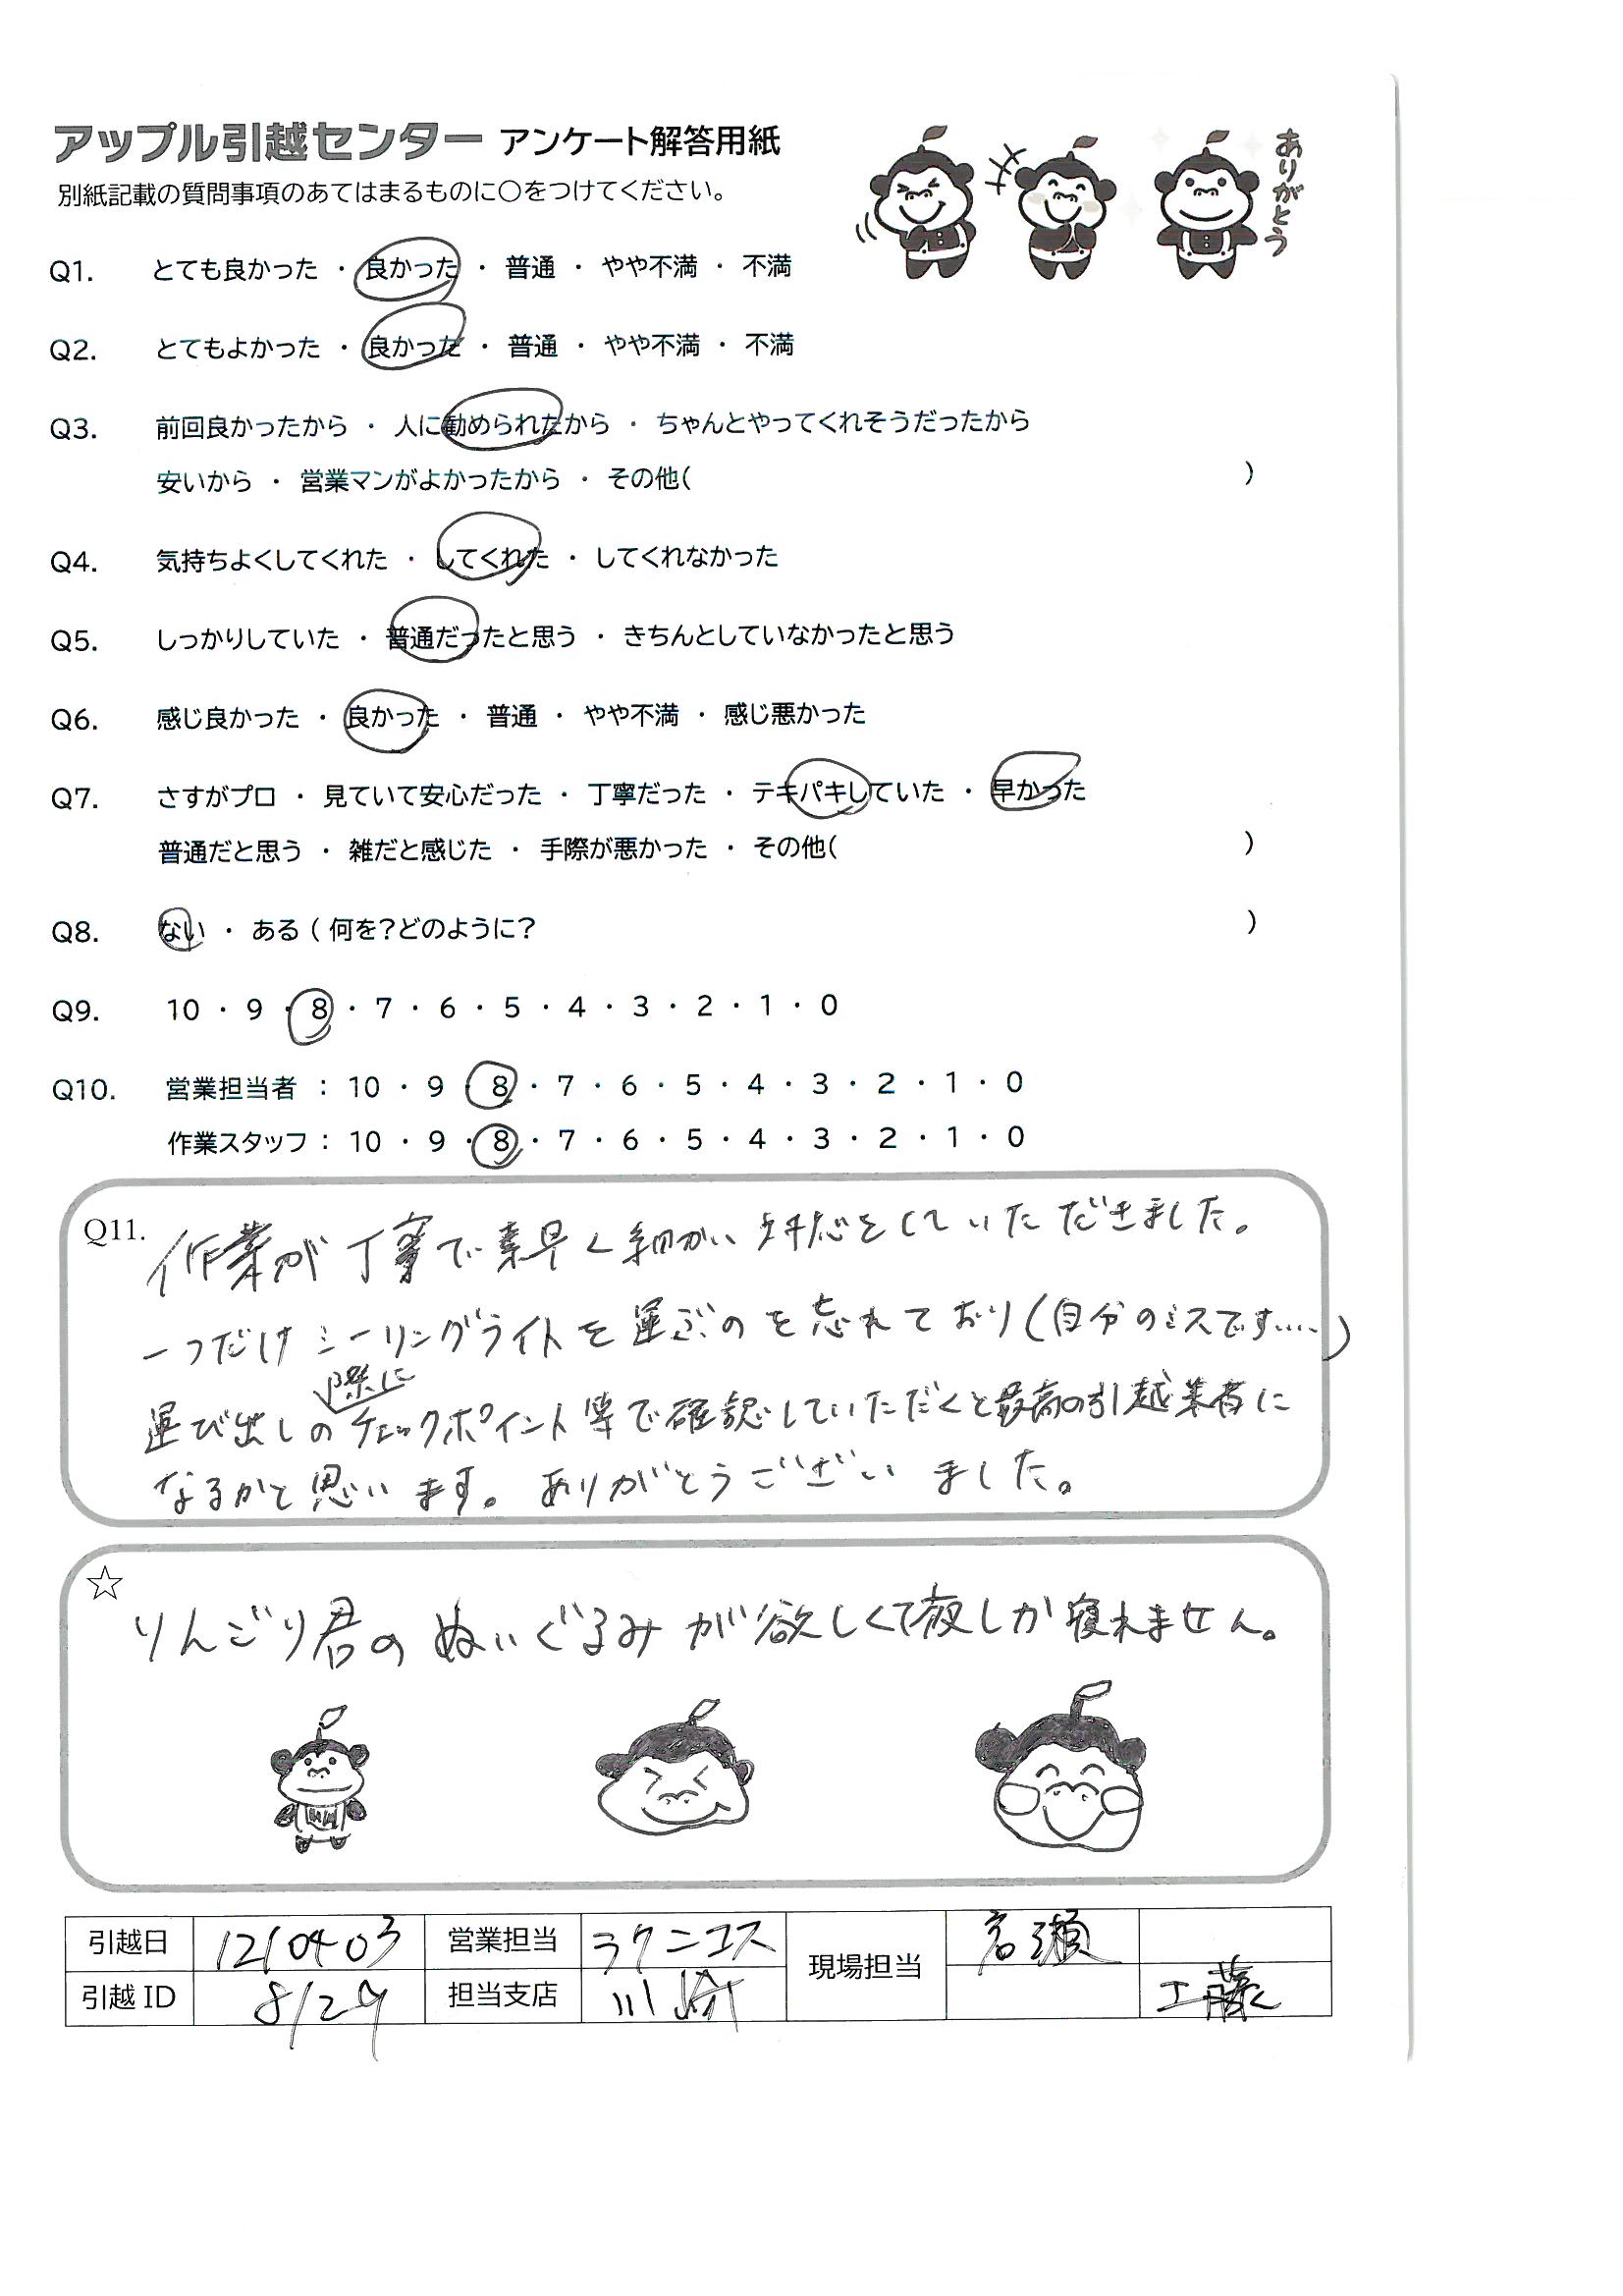 アップル引越センター アンケート解答用紙
別紙記載の質問事項のあてはまるものに○をつけてください。
ありがとう
Q1. とても良かった ・ 良かった ・ 普通 ・ やや不満 ・ 不満
Q2. とてもよかった ・ 良かった ・ 普通 ・ やや不満 ・ 不満
Q3. 前回良かったから ・ 人に勧められたから ・ ちゃんとやってくれそうだったから
安いから ・ 営業マンがよかったから ・ その他( )
Q4. 気持ちよくしてくれた ・ してくれた ・ してくれなかった
Q5. しっかりしていた ・ 普通だったと思う ・ きちんとしていなかったと思う
Q6. 感じ良かった ・ 良かった ・ 普通 ・ やや不満 ・ 感じ悪かった
Q7. さすがプロ ・ 見ていて安心だった ・ 丁寧だった ・ テキパキしていた ・ 早かった
普通だと思う ・ 雑だと感じた ・ 手際が悪かった ・ その他( )
Q8. ない ・ ある ( 何を?どのように? )
Q9. 10 ・ 9 ・ 8 ・ 7 ・ 6 ・ 5 ・ 4 ・ 3 ・ 2 ・ 1 ・ 0
Q10. 営業担当者 : 10 ・ 9 ・ 8 ・ 7 ・ 6 ・ 5 ・ 4 ・ 3 ・ 2 ・ 1 ・ 0
作業スタッフ : 10 ・ 9 ・ 8 ・ 7 ・ 6 ・ 5 ・ 4 ・ 3 ・ 2 ・ 1 ・ 0
Q11. 作業が丁寧で素早く細かい対応をしていただきました。
一つだけシーリングライトを運ぶのを忘れており(自分のミスです....)
運び出しの際にチェックポイント等で確認していただくと最高の引越業者に
なるかと思います。ありがとうございました。
☆
りんごり君のぬいぐるみが欲しくて夜しか寝れません。
引越日 1210403 営業担当 ラクニコス 現場担当
引越 ID 8129 担当支店 川崎 工藤